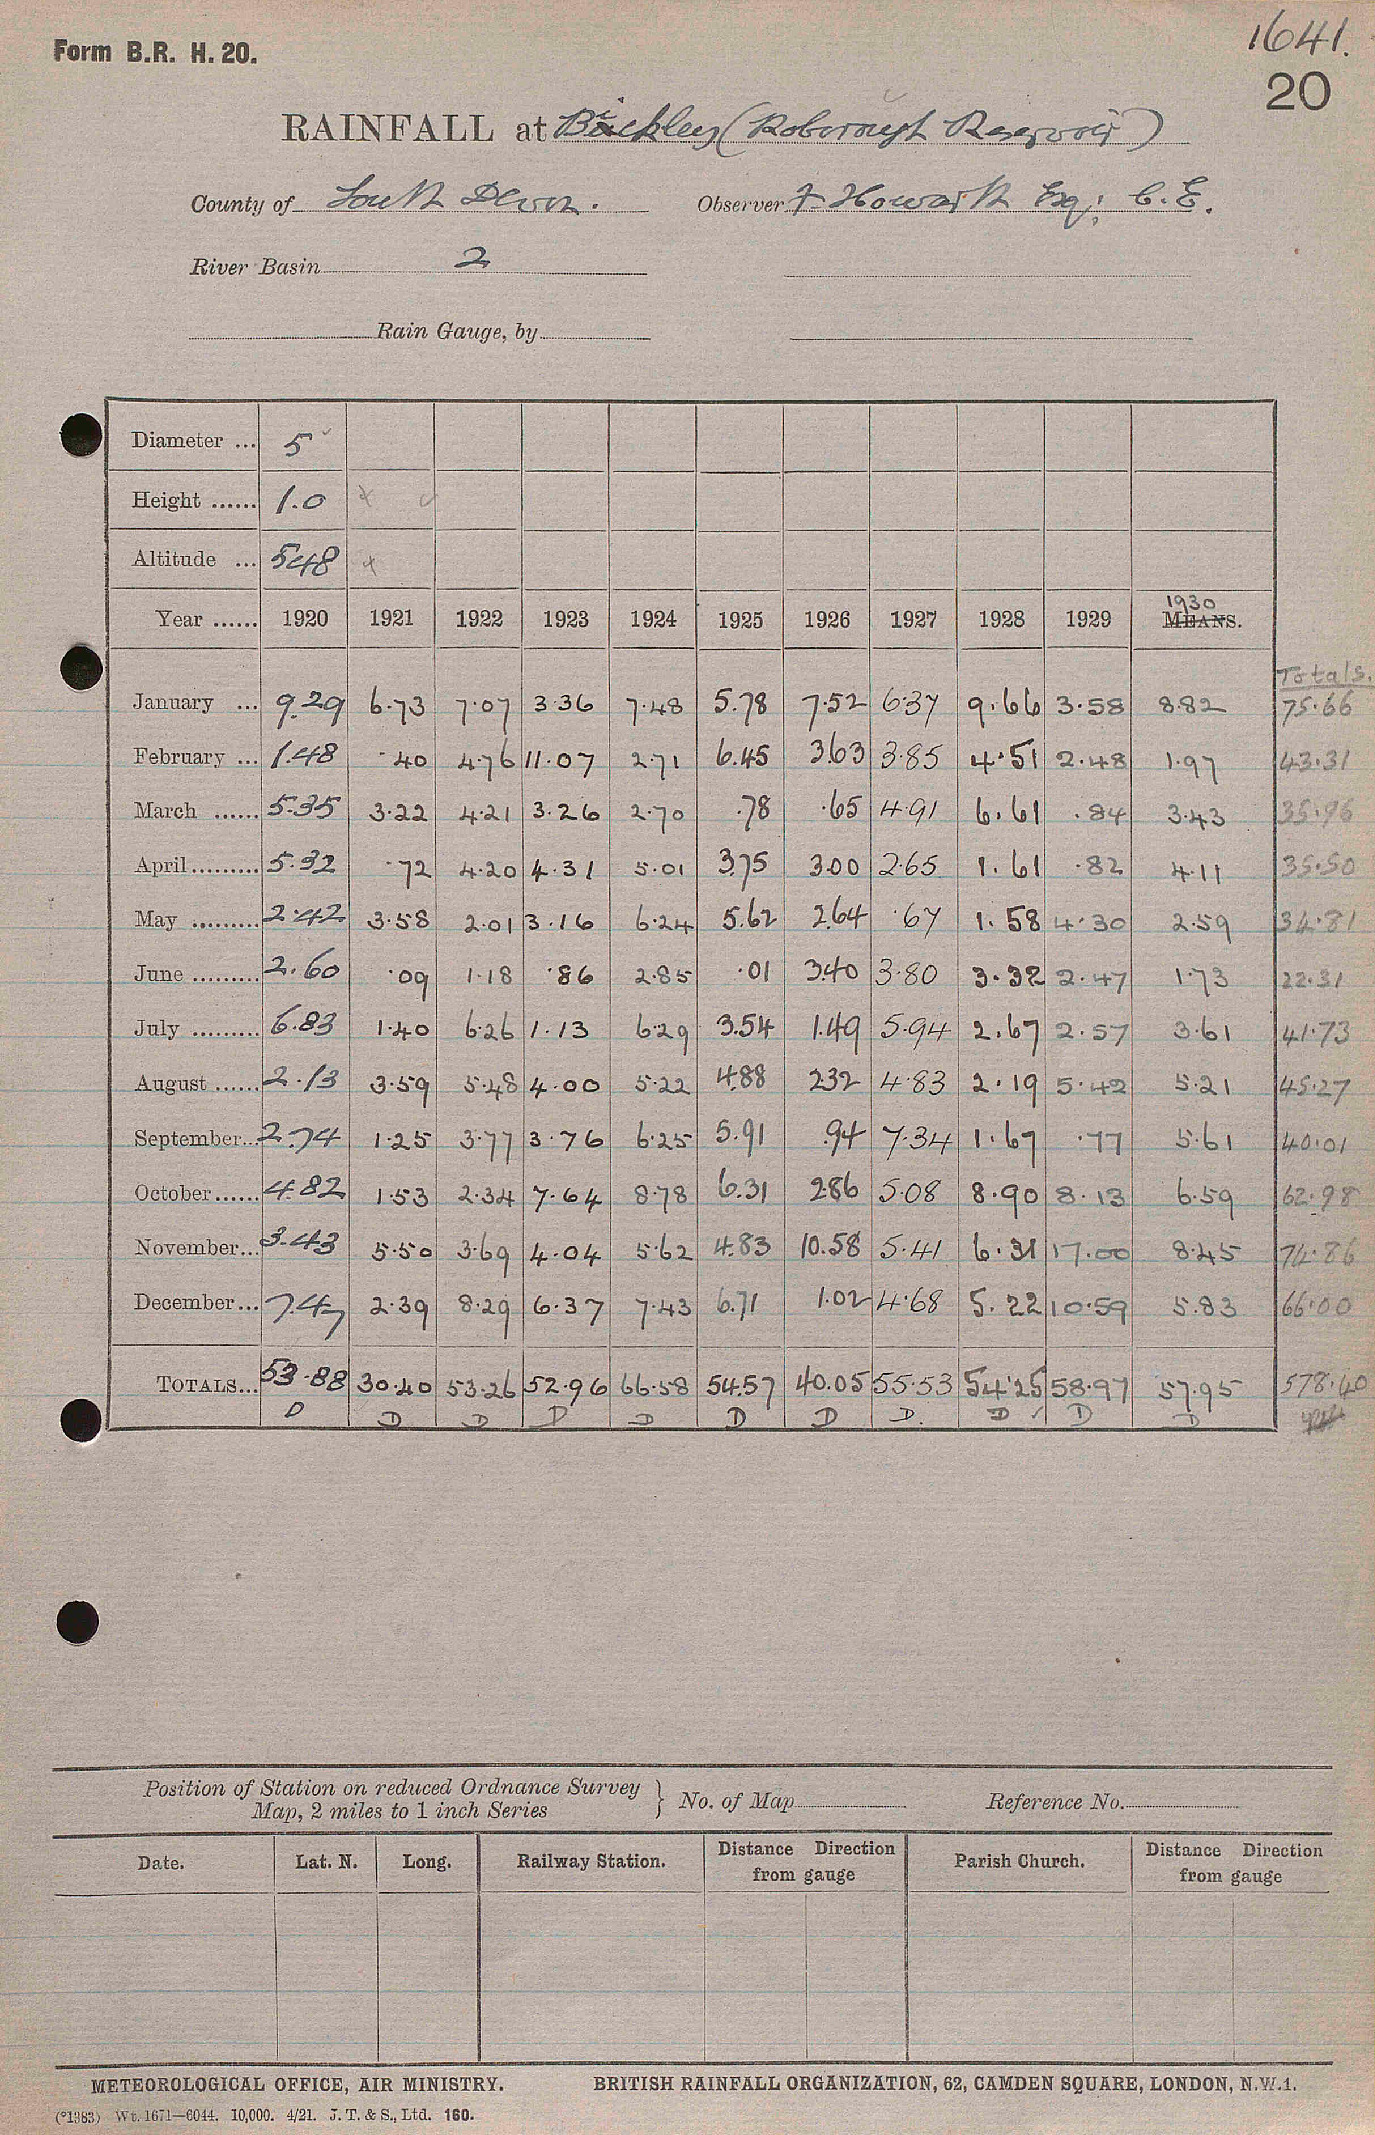 Form B.R. H. 20.
1641.
20
RAINFALL at Bickley (Roborough Reservoir)
County of South Devon. Observer F Howarth Esq: C.E.
River Basin 2
Rain Gauge, by
Diameter ... 5
Height ...... 1.0 x
Altitude ... 548 x
Year ...... 1920 1921 1922 1923 1924 1925 1926 1927 1928 1929 1930 MEANS.
Totals.
January ... 9.29 6.73 7.07 3.36 7.48 5.78 7.52 6.37 9.66 3.58 8.82 75.66
February ... 1.48 .40 4.76 11.07 2.71 6.45 3.63 3.85 4.51 2.48 1.97 43.31
March ...... 5.35 3.22 4.21 3.26 2.70 .78 .65 4.91 6.61 .84 3.43 35.96
April ......... 5.32 .72 4.20 4.31 5.01 3.75 3.00 2.65 1.61 .82 4.11 35.50
May ......... 2.42 3.58 2.01 3.16 6.24 5.62 2.64 .67 1.58 4.30 2.59 34.81
June ......... 2.60 .09 1.18 .86 2.85 .01 3.40 3.80 3.32 2.47 1.73 22.31
July ......... 6.83 1.40 6.26 1.13 6.29 3.54 1.49 5.94 2.67 2.57 3.61 41.73
August ...... 2.13 3.59 5.48 4.00 5.22 4.88 2.32 4.83 2.19 5.42 5.21 45.27
September... 2.74 1.25 3.77 3.76 6.25 5.91 .94 7.34 1.67 .77 5.61 40.01
October ...... 4.82 1.53 2.34 7.64 8.78 6.31 2.86 5.08 8.90 8.13 6.59 62.98
November... 3.43 5.50 3.69 4.04 5.62 4.83 10.58 5.41 6.31 17.00 8.45 74.86
December... 7.47 2.39 8.29 6.37 7.43 6.71 1.02 4.68 5.22 10.59 5.83 66.00
TOTALS... 53.88 30.40 53.26 52.96 66.58 54.57 40.05 55.53 54.25 58.97 57.95 578.40
D D D D D D D D. D D D
Position of Station on reduced Ordnance Survey
Map, 2 miles to 1 inch Series } No. of Map Reference No.
Date. Lat. N. Long. Railway Station. Distance from gauge Direction Parish Church. Distance from gauge Direction
METEOROLOGICAL OFFICE, AIR MINISTRY. BRITISH RAINFALL ORGANIZATION, 62, CAMDEN SQUARE, LONDON, N.W.1.
(°1383) Wt. 1671—6044. 10,000. 4/21. J. T. & S., Ltd. 160.